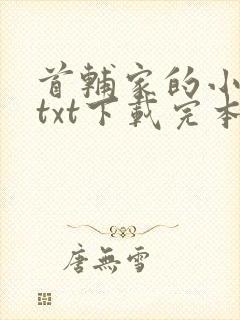 首輔家的小
txt下載完本
唐無雪